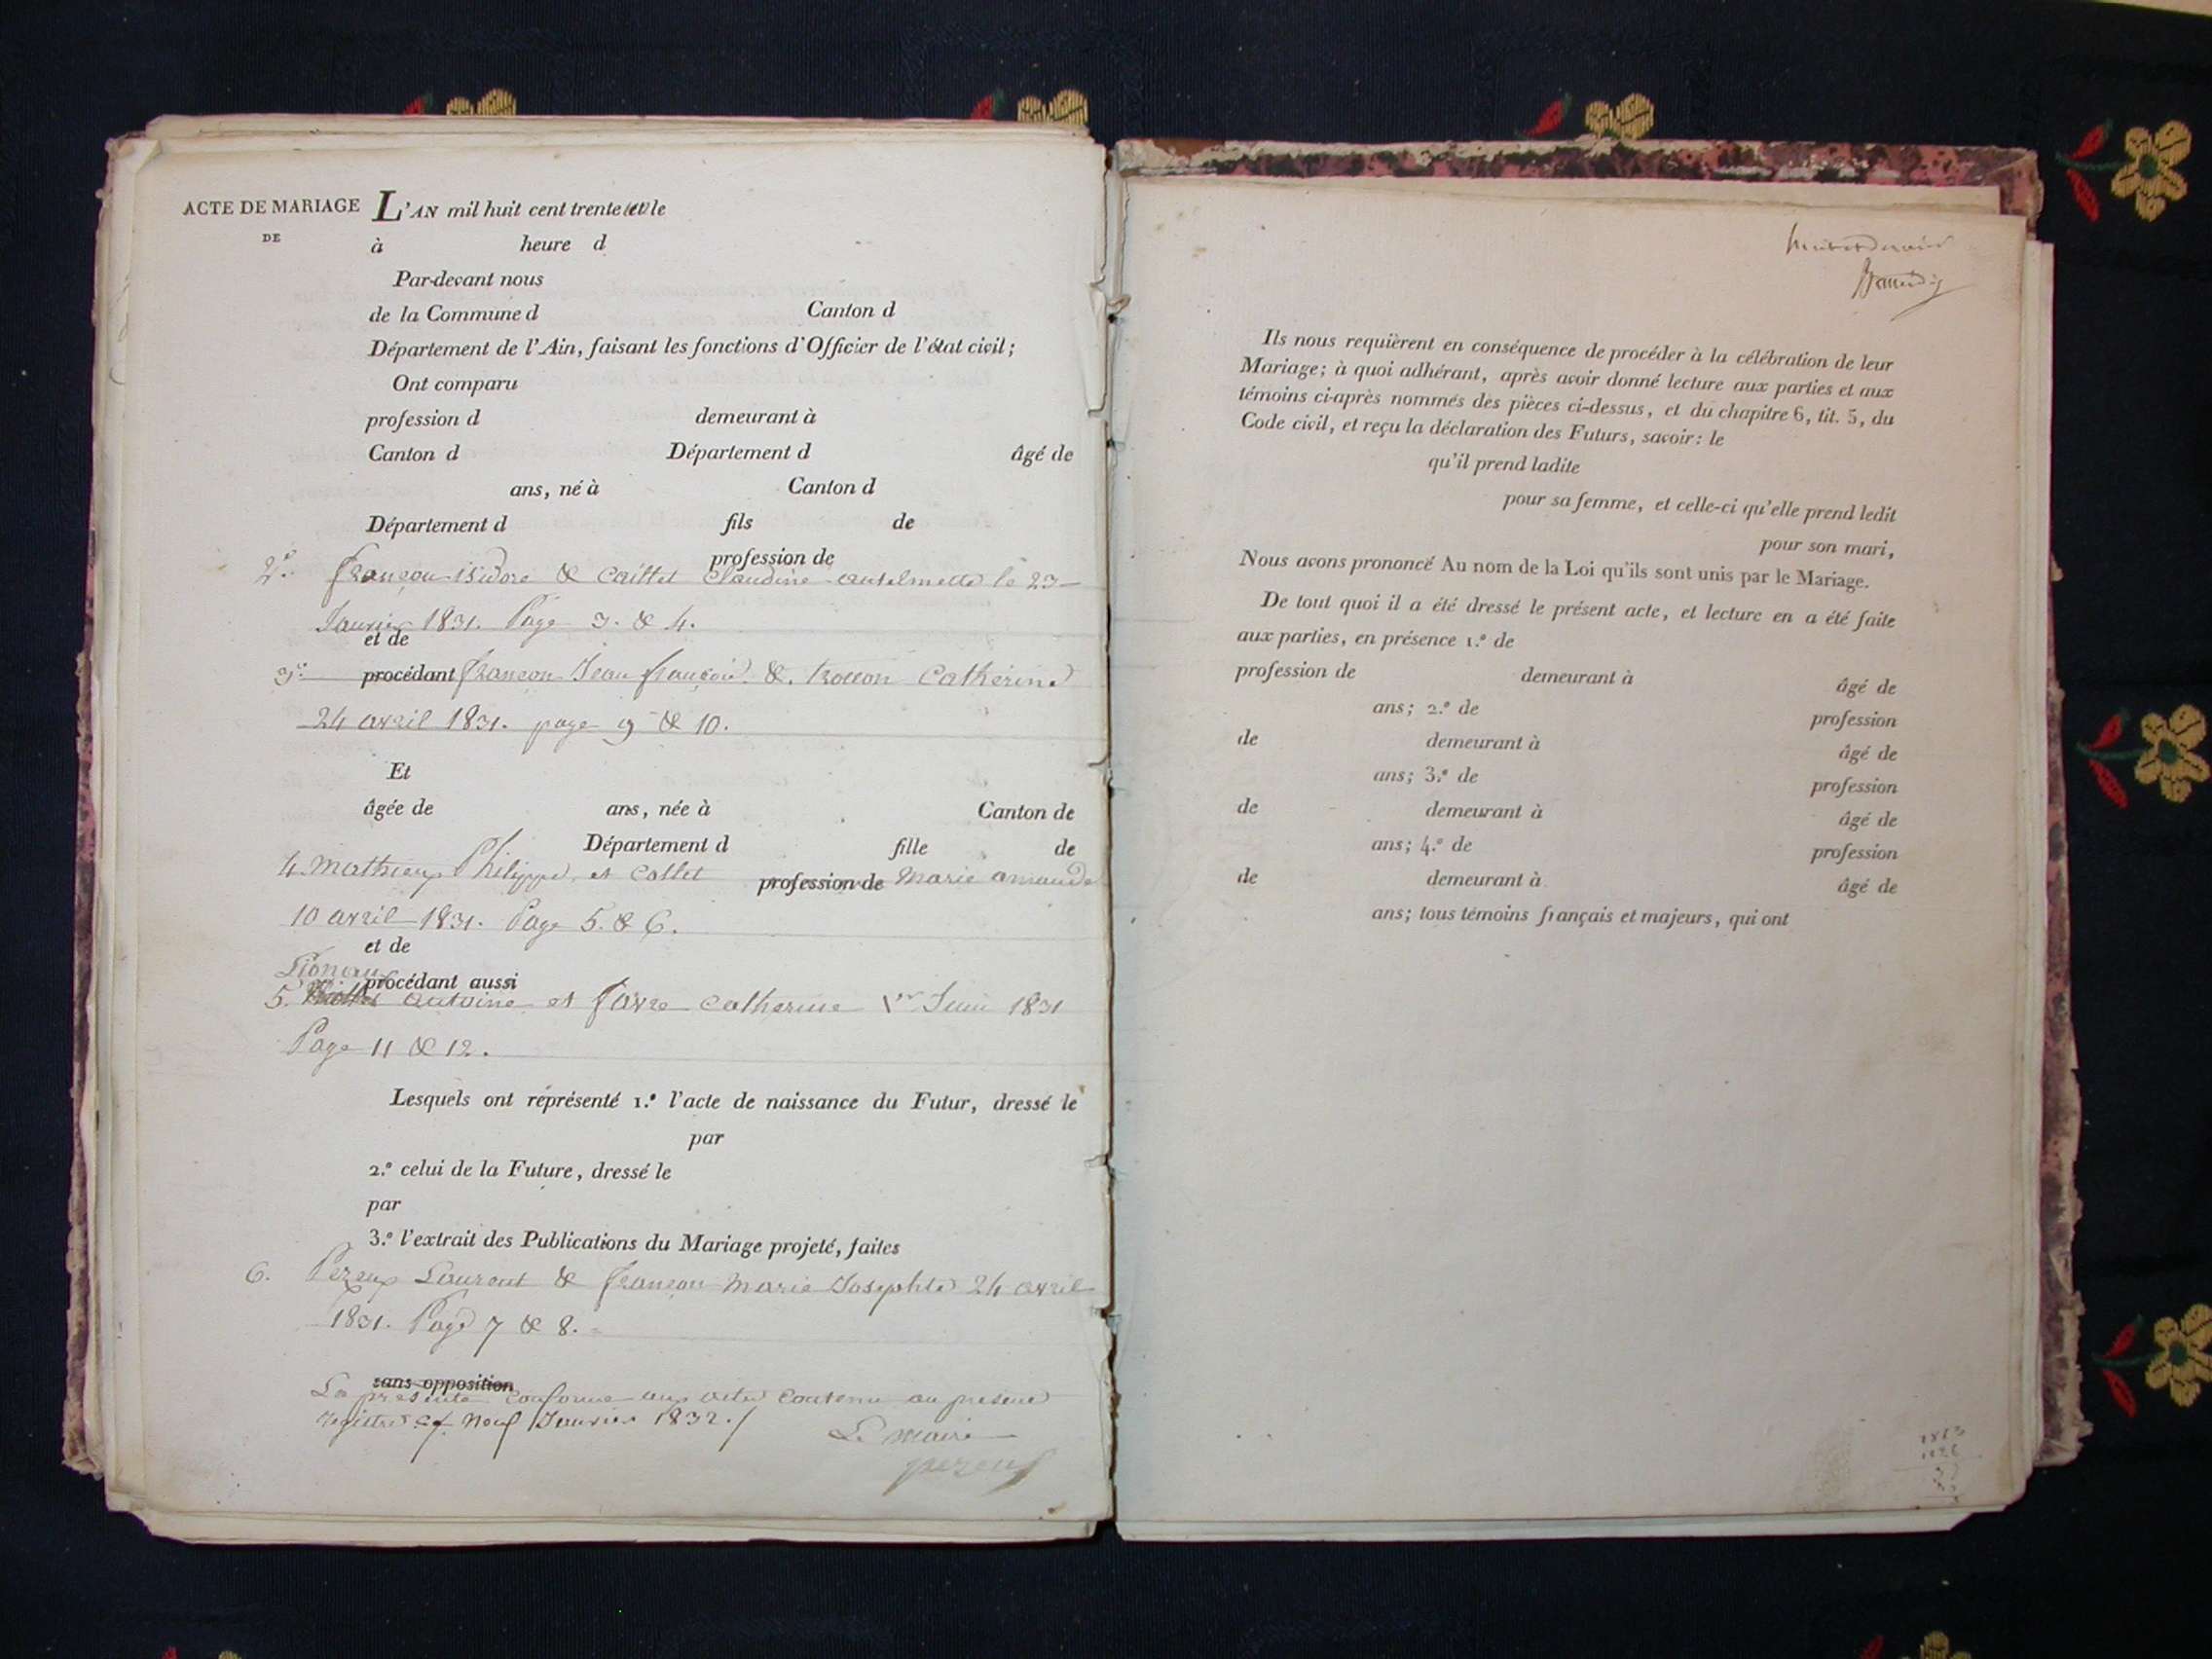 ACTE DE MARIAGE
DE
L'AN mil huit cent trente et le
à heure d
Par-devant nous
de la Commune d Canton d
Département de l'Ain, faisant les fonctions d'Officier de l'état civil;
Ont comparu
profession d demeurant à
Canton d Département d âgé de
ans, né à Canton d
Département d fils de
profession de
2.º françon isidore & Caillet Claudine anselmette le 23
Janvier 1831. Page 3. & 4.
et de
3.º procédant françon Jean françois & Catherine
24 avril 1831. page 9 & 10.
Et
âgée de ans, née à Canton de
Département d fille de
4. mathieux Philippe et Collet profession de Marie amande
10 avril 1831. Page 5. & 6.
et de
procédant aussi
5. antoine et favre Catherine 1er Juin 1831
Page 11 & 12.
Lesquels ont réprésenté 1.º l'acte de naissance du Futur, dressé le
par
2.º celui de la Future, dressé le
par
3.º l'extrait des Publications du Mariage projeté, faites
6. Pereux Laurent & françon Marie Josephte 24 avril
1831. Page 7 & 8.
sans opposition
La présente conforme aux actes contenu au présent
registre Neuf Janvier 1832.
Le maire
pereux
Ils nous requièrent en conséquence de procéder à la célébration de leur
Mariage; à quoi adhérant, après avoir donné lecture aux parties et aux
témoins ci-après nommés des pièces ci-dessus, et du chapitre 6, tit. 5, du
Code civil, et reçu la déclaration des Futurs, savoir: le
qu'il prend ladite
pour sa femme, et celle-ci qu'elle prend ledit
pour son mari,
Nous avons prononcé Au nom de la Loi qu'ils sont unis par le Mariage.
De tout quoi il a été dressé le présent acte, et lecture en a été faite
aux parties, en présence 1.º de
profession de demeurant à âgé de
ans; 2.º de profession
de demeurant à âgé de
ans; 3.º de profession
de demeurant à âgé de
ans; 4.º de profession
de demeurant à âgé de
ans; tous témoins français et majeurs, qui ont